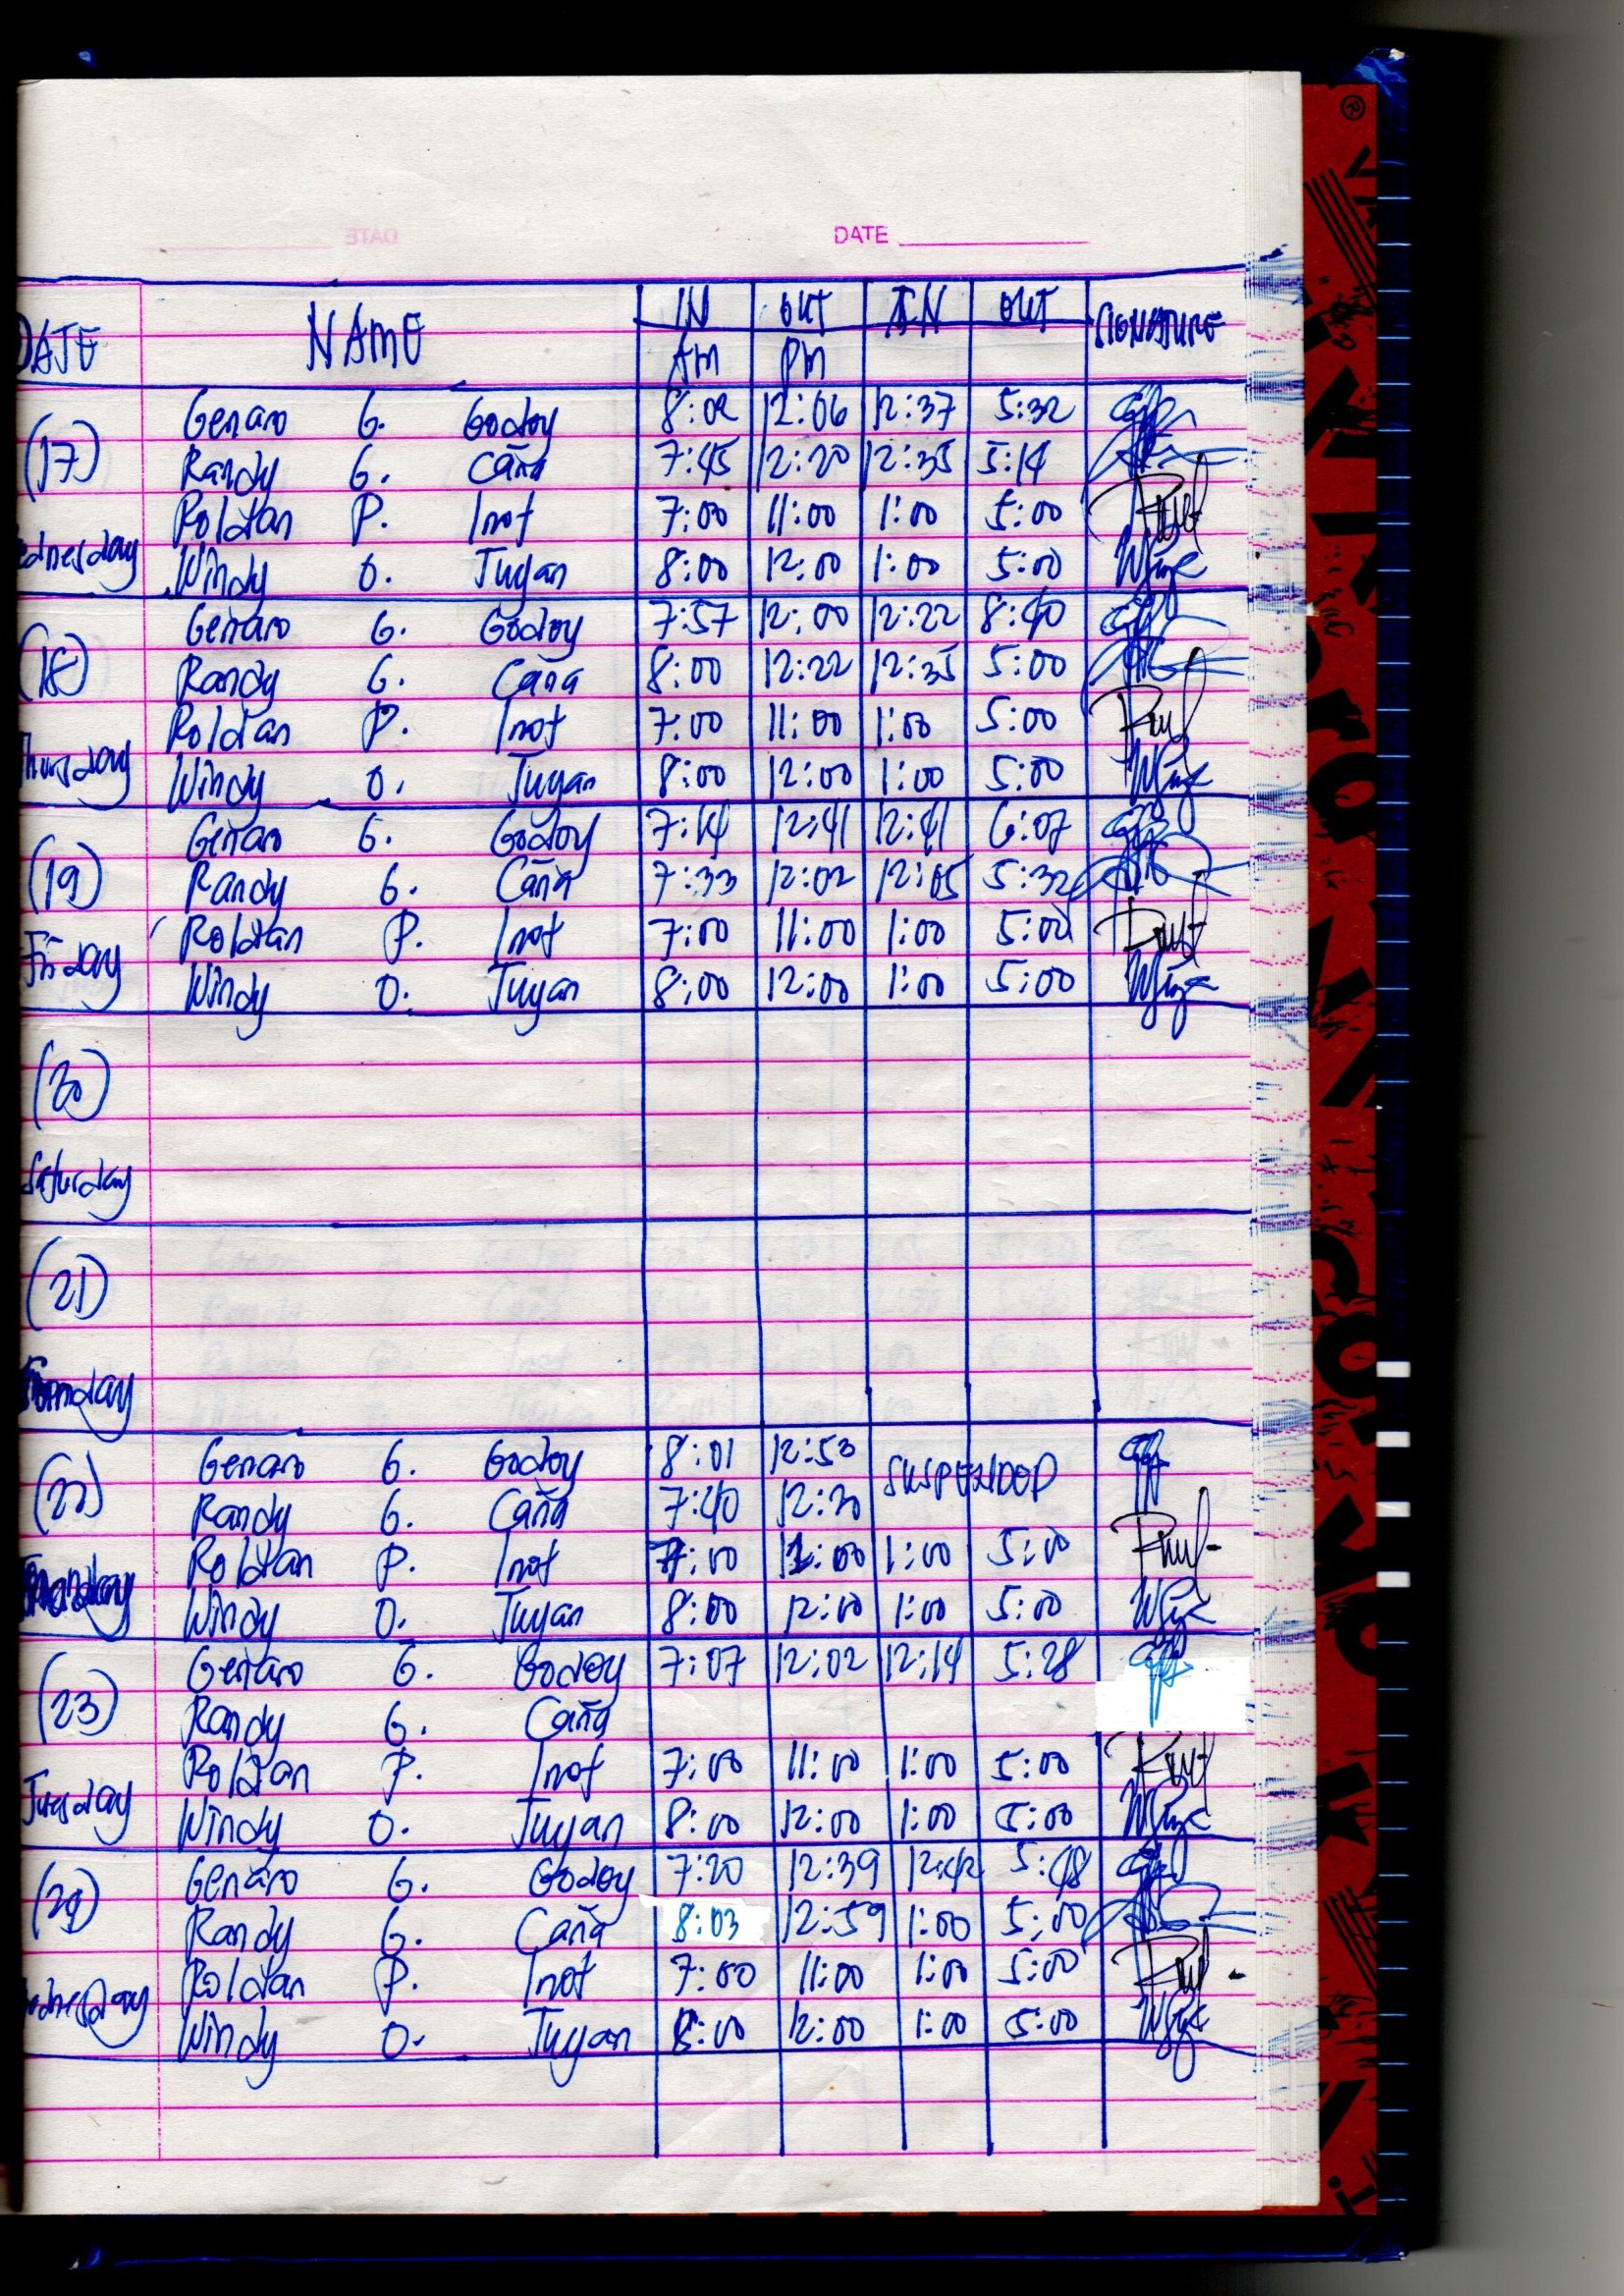 DATE
DATE NAME IN OUT IN OUT SIGNATURE
AM PM
(17) Genaro G. Godoy 8:02 12:06 12:37 5:32
Randy G. Caña 7:45 12:20 12:35 5:14
Roldan P. Inot 7:00 11:00 1:00 5:00
ednesday Windy O. Tuyan 8:00 12:00 1:00 5:00
(18) Genaro G. Godoy 7:57 12:00 12:22 8:40
Randy G. Caña 8:00 12:22 12:35 5:00
Roldan P. Inot 7:00 11:00 1:00 5:00
Thursday Windy O. Tuyan 8:00 12:00 1:00 5:00
Genaro G. Godoy 7:14 12:41 12:41 6:07
(19) Randy G. Caña 7:33 12:02 12:05 5:32
Roldan P. Inot 7:00 11:00 1:00 5:00
Friday Windy O. Tuyan 8:00 12:00 1:00 5:00
(20)
Saturday
(21)
(22) Genaro G. Godoy 8:01 12:53 SUSPENDED
Randy G. Caña 7:40 12:30
Roldan P. Inot 7:00 11:00 1:00 5:00
Windy O. Tuyan 8:00 12:00 1:00 5:00
Genaro G. Godoy 7:07 12:02 12:14 5:28
(23) Randy G. Caña
Roldan P. Inot 7:00 11:00 1:00 5:00
Tuesday Windy O. Tuyan 8:00 12:00 1:00 5:00
(24) Genaro G. Godoy 7:20 12:39 12:42 5:48
Randy G. Caña 8:03 12:59 1:00 5:00
Roldan P. Inot 7:00 11:00 1:00 5:00
ednesday Windy O. Tuyan 8:00 12:00 1:00 5:00